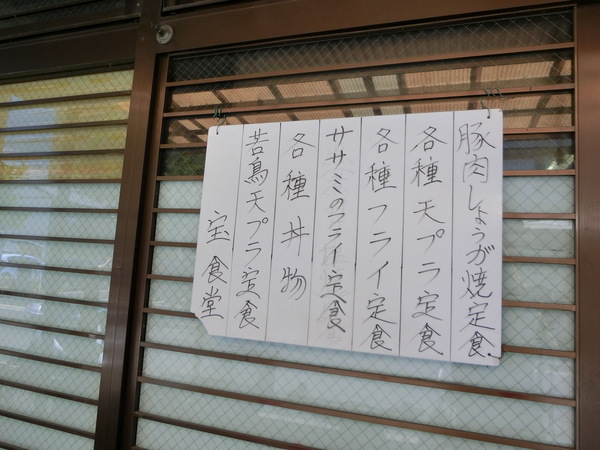 豚肉しょうが焼定食.
各種天プラ定食
各種フライ定食
ササミのフライ定食
各種丼物
若鳥天プラ定食
宝食堂